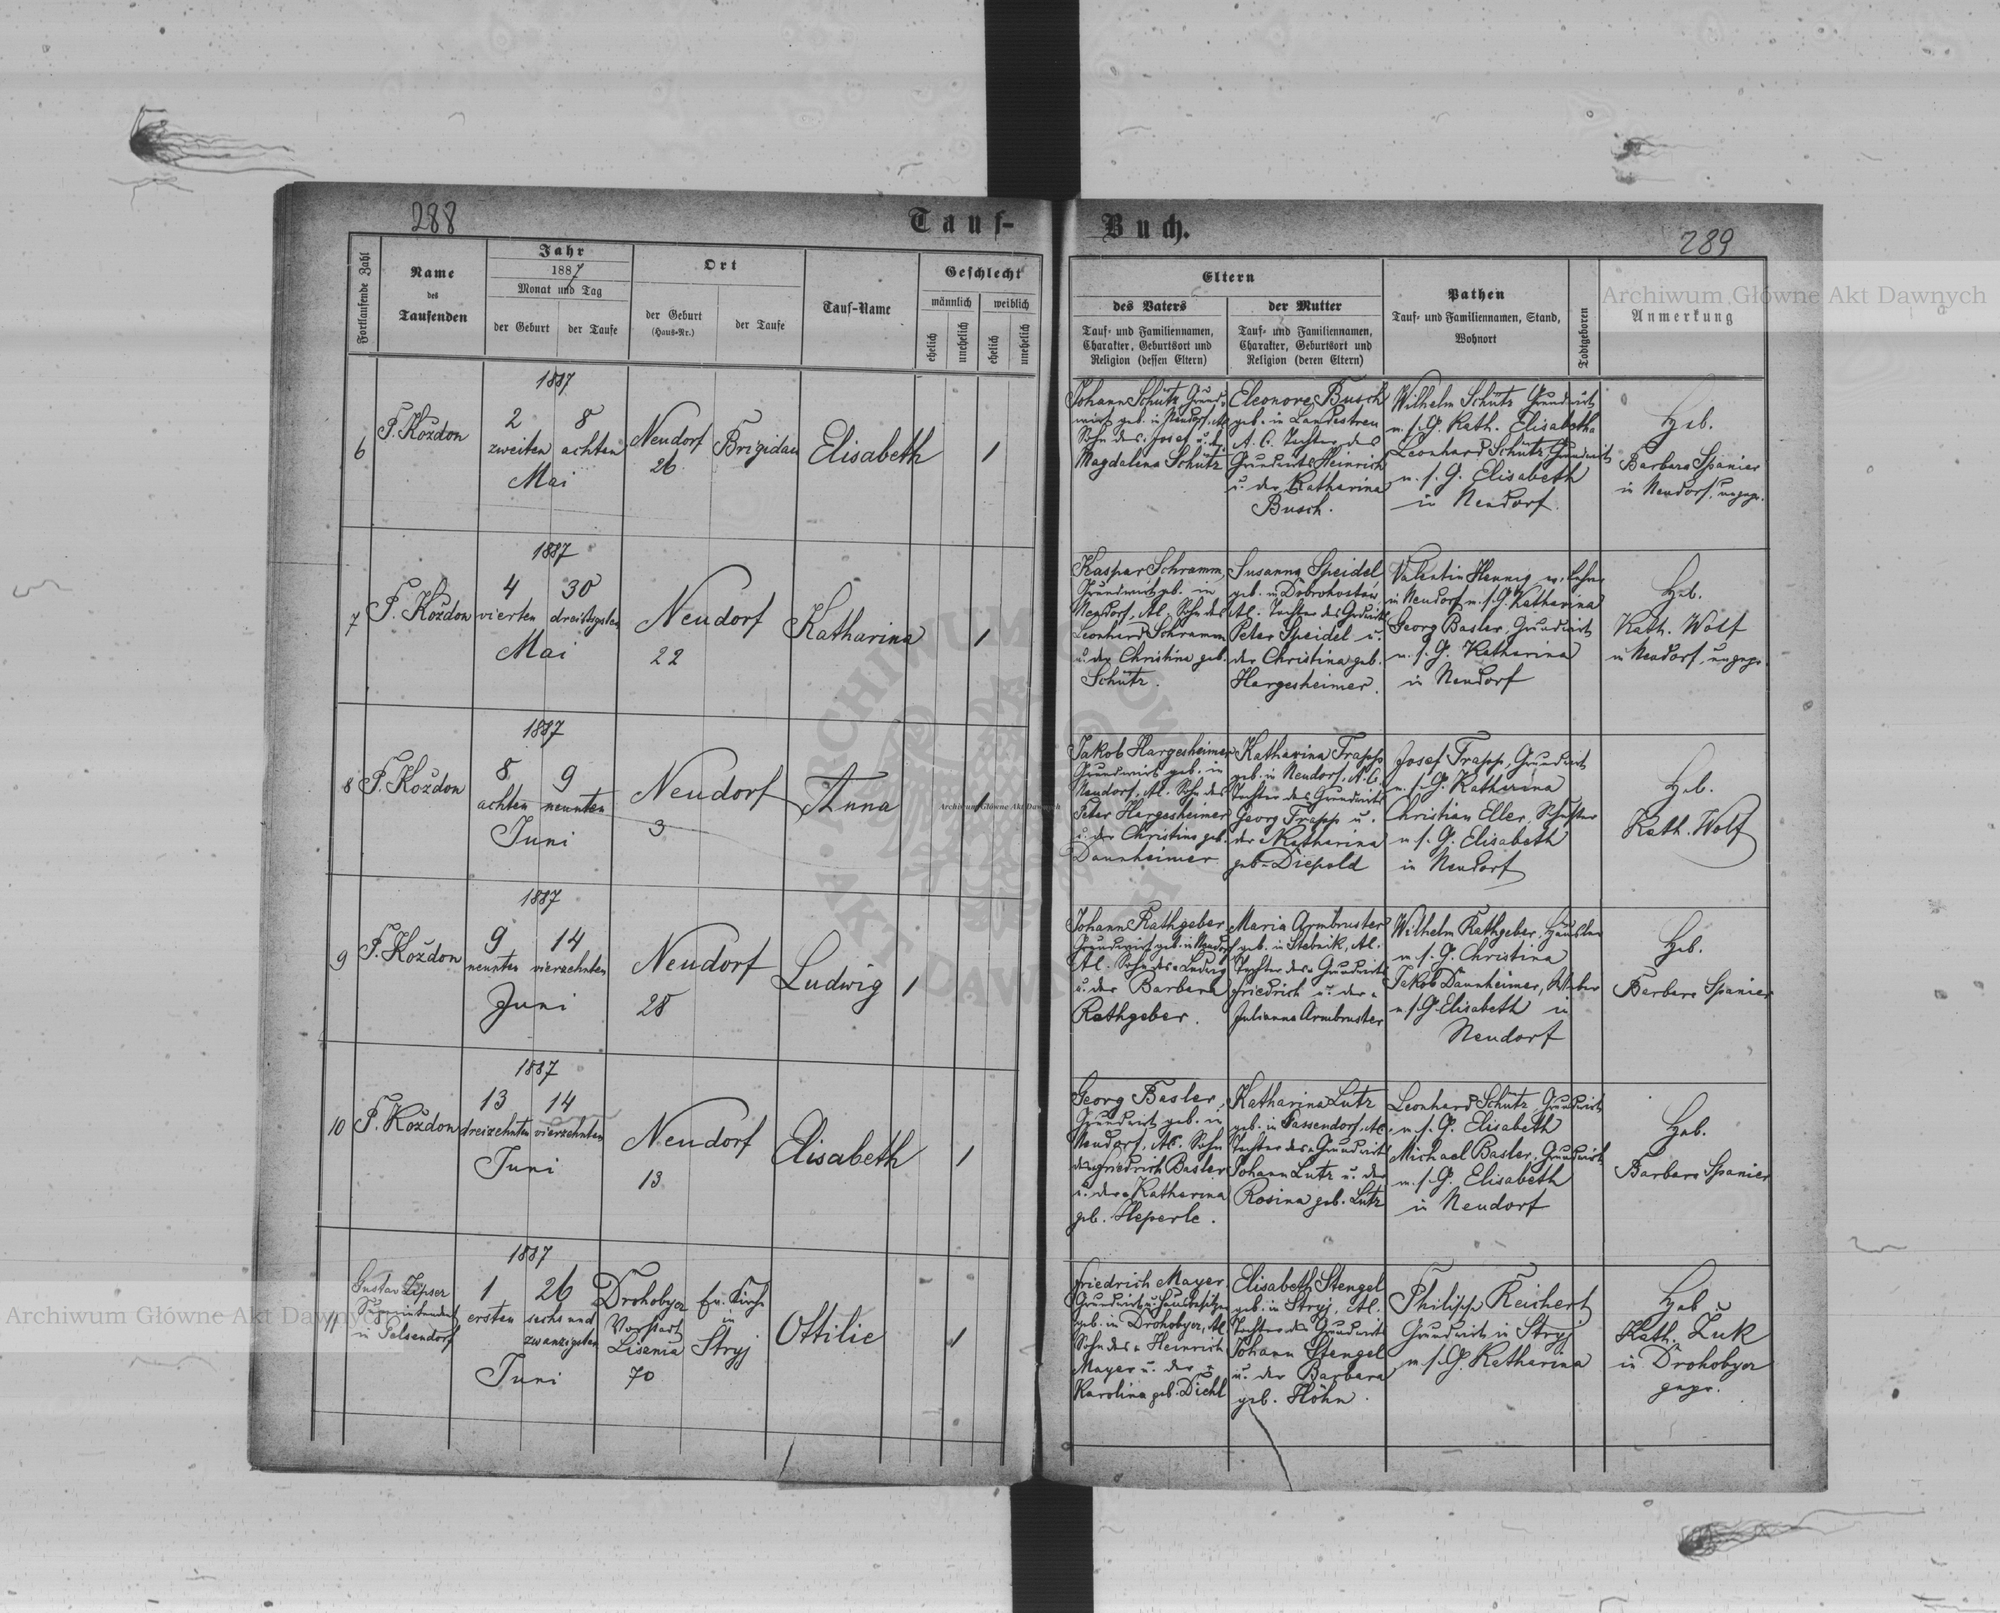 288
Tauf-
Fortlaufende Zahl
Name
des
Taufenden
Jahr
1887
Monat und Tag
der Geburt
der Taufe
Ort
der Geburt
(Haus-Nr.)
der Taufe
Tauf-Name
Geschlecht
männlich
weiblich
ehelich
unehelich
ehelich
unehelich
6
F. Koždon
1887
2
zweiten
8
achten
Mai
Neudorf
26
Brigidau
Elisabeth
1
7
F. Koždon
1887
4
vierten
30
dreißigsten
Mai
Neudorf
22
Katharina
1
8
F. Koždon
1887
8
achten
9
neunten
Juni
Neudorf
3
Anna
1
9
F. Koždon
1887
9
neunten
14
vierzehnten
Juni
Neudorf
28
Ludwig
1
10
F. Koždon
1887
13
dreizehnten
14
vierzehnten
Juni
Neudorf
13
Elisabeth
1
11
Gustav Zipser
Superintendent
in Gelsendorf
1887
1
ersten
26
sechs und
zwanzigsten
Juni
Drohobycz
Vorstadt
Lisznia
70
Ev. Kirche
in
Stryj
Ottilie
1
Buch.
289
Eltern
des Vaters
Tauf- und Familiennamen,
Charakter, Geburtsort und
Religion (dessen Eltern)
der Mutter
Tauf- und Familiennamen,
Charakter, Geburtsort und
Religion (deren Eltern)
Pathen
Tauf- und Familiennamen, Stand,
Wohnort
Todtgeboren
Anmerkung
Johann Schütz Grund-
wirt geb. in Neudorf, A.C.
Sohn des Josef u. der
Magdalena Schütz
Eleonore Busch
geb. in Landestreu
A. C. Tochter des
Grundwirts Heinrich
u. der Katharina
Busch.
Wilhelm Schütz Grundwirt
m. s. G. Kath. Elisabetha
Leonhard Schütz, Grundwirt
m. s. G. Elisabeth
in Neudorf.
Heb.
Barbara Spanier
in Neudorf, ungepr.
Kaspar Schramm,
Grundwirt geb. in
Neudorf, A.C. Sohn des
Leonhard Schramm
u. der Christina geb.
Schütz.
Susanna Speidel
geb. in Dobrohostów
A.C. Tochter des Grdwirts
Peter Speidel u.
der Christina geb.
Hargesheimer.
Valentin Hennig, ev. Lehrer
in Neudorf m. s. G. Katharina
Georg Basler, Grundwirt
m. s. G. Katharina
in Neudorf
Heb.
Kath. Wolf
in Neudorf, ungepr.
Jakob Hargesheimer
Grundwirt geb. in
Neudorf, A.C. Sohn des
Peter Hargesheimer
u. der Christina geb.
Dannheimer
Katharina Trapp
geb. in Neudorf, A.C.
Tochter des Grundwirts
Georg Trapp u.
der Katharina
geb. Diepold
Josef Trapp, Grundwirt
m. s. G. Katharina
Christian Eller, Schuster
m. s. G. Elisabeth
in Neudorf
Heb.
Kath. Wolf
Johann Rathgeber
Grundwirt geb. in Neudorf
A.C. Sohn des Ludwig
u. der Barbara
Rathgeber.
Maria Armbruster
geb. in Stebnik, A.C.
Tochter des Grundwirts
Friedrich u. der
Julianna Armbruster
Wilhelm Rathgeber, Häusler
m. s. G. Christina
Jakob Dannheimer, Weber
m. s. G. Elisabeth in
Neudorf
Heb.
Barbara Spanier
Georg Basler,
Grundwirt geb. in
Neudorf, A.C. Sohn
des Friedrich Basler
u. der Katharina
geb. Heperle.
Katharina Lutz
geb. in Gassendorf, A.C.
Tochter des Grundwirts
Johann Lutz u. der
Rosina geb. Lutz
Leonhard Schütz, Grundwirt
m. s. G. Elisabeth
Michael Basler, Grundwirt
m. s. G. Elisabeth
in Neudorf
Heb.
Barbara Spanier
Friedrich Mayer
Grundwirt u. Hausbesitzer
geb. in Drohobycz, A.C.
Sohn des Heinrich
Mayer u. der
Karolina geb. Diehl
Elisabeth Stengel
geb. in Stryj, A.C.
Tochter des Grundwirts
Johann Stengel
u. der Barbara
geb. Höhn.
Philipp Reichert
Grundwirt in Stryj
m. s. G. Katharina
Heb.
Kath. Żuk
in Drohobycz
gepr.
Archiwum Główne Akt Dawnych
Archiwum Główne Akt Dawnych
Archiwum Główne Akt Dawnych